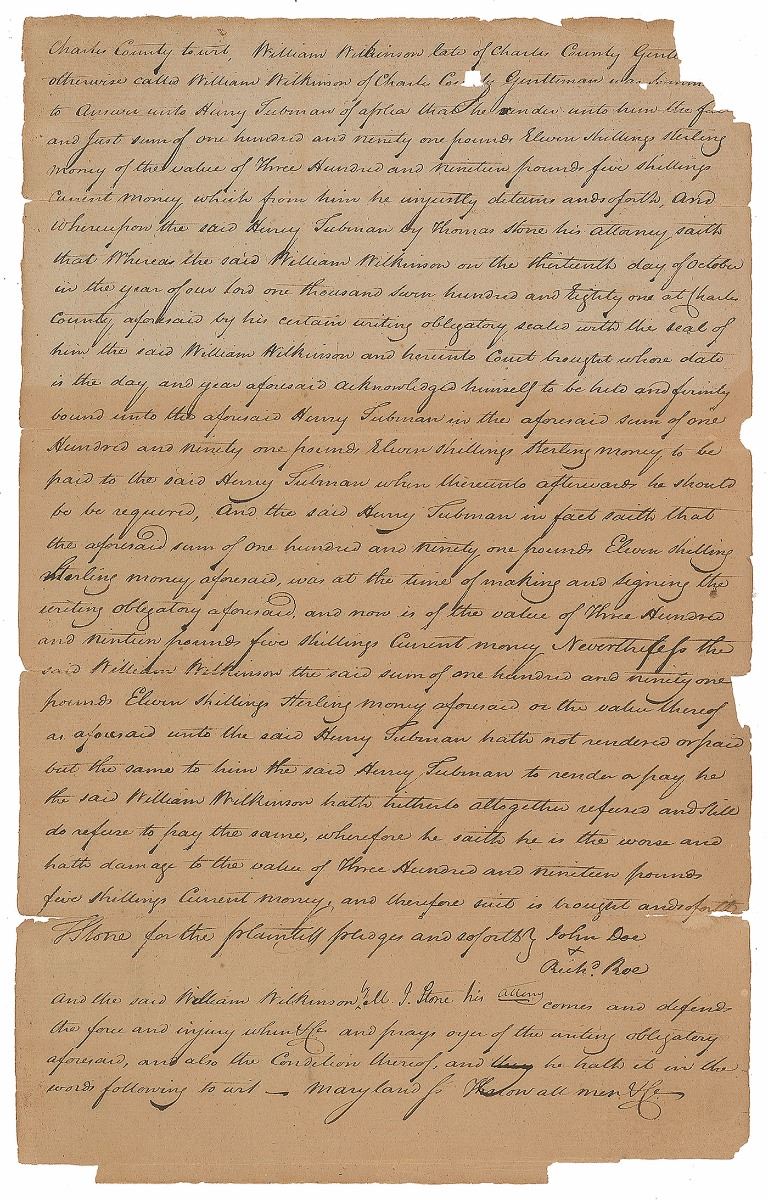 Charles County to wit, William Wilkinson late of Charles County Gentle
otherwise called William Wilkinson of Charles County Gentleman was
to Answer unto Henry Tubman of a plea that he render unto him the
and Just sum of one hundred and ninety one pounds Eleven shillings sterling
money of the value of Three Hundred and nineteen pounds five shillings
Current Money which from him he unjustly detains and soforth, And
whereupon the said Henry Tubman by Thomas Stone his attorney saith
that Whereas the said William Wilkinson on the thirteenth day of October
in the year of our Lord one thousand seven hundred and Eighty one at Charles
County aforesaid by his certain writing obligatory sealed with the seal of
him the said William Wilkinson and hereunto Court brought whose date
is the day and year aforesaid acknowledged himself to be held and firmly
bound unto the aforesaid Henry Tubman in the aforesaid sum of one
Hundred and ninety one pounds Eleven shillings sterling money to be
paid to the said Henry Tubman when thereunto afterwards he should
be be required, And the said Henry Tubman in fact saith that
the aforesaid sum of one hundred and ninety one pounds Eleven shilling
sterling money aforesaid, was at the time of making and signing the
writing obligatory aforesaid, and now is of the value of Three Hundred
and nineteen pounds five shillings Current money Nevertheless the
said William Wilkinson the said sum of one hundred and ninety one
pounds Eleven shillings sterling money aforesaid or the value thereof
as aforesaid unto the said Henry Tubman hath not rendered or paid
but the same to him the said Henry Tubman to render or pay he
the said William Wilkinson hath hitherto altogether refused and still
do refuse to pay the same, wherefore he saith he is the worse and
hath damage to the value of Three Hundred and nineteen pounds
five shillings Current money, and therefore suit is brought and soforth
T Stone for the plaintiff pledges and soforth John Doe
& Richd. Roe
And the said William Wilkinson by M J. Stone his attorney comes and defends
the force and injury when &Ca and prays oyer of the writing obligatory
aforesaid, and also the Condition thereof, and he hath it in the
words following to wit — Maryland ss Know all men &Ca